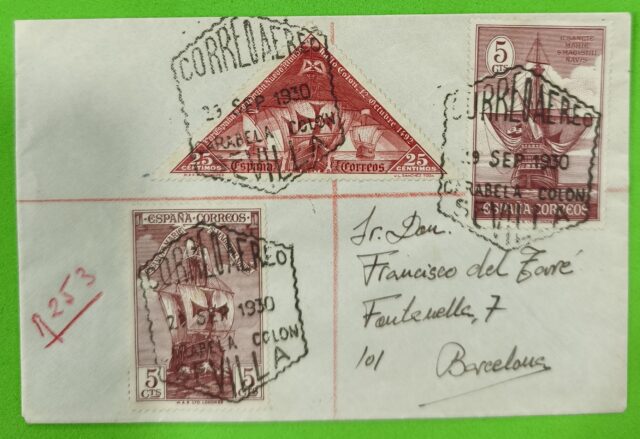 CORREO AEREO
29 SEP 1930
CARABELA COLON
SEVILLA
25
CENTIMOS
España Correos
25
CENTIMOS
5
CTS
II SANCTE
MARIE
NAVIS
CORREO AEREO
29 SEP 1930
CARABELA COLON
SEVILLA
ESPAÑA CORREOS
ESPAÑA CORREOS
CORREO AEREO
29 SEP 1930
CARABELA COLON
VILLA
5
CTS
5
CTS
R253
Sr. Don.
Francisco del Tarré
Fontanella, 7
101 Barcelona